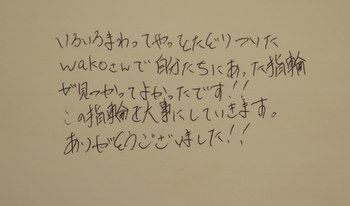 いろいろまわってやっとたどりついた
wakoさんで自分たちにあった指輪
が見つかってよかったです!!
この指輪を大事にしていきます。
ありがとうございました!!